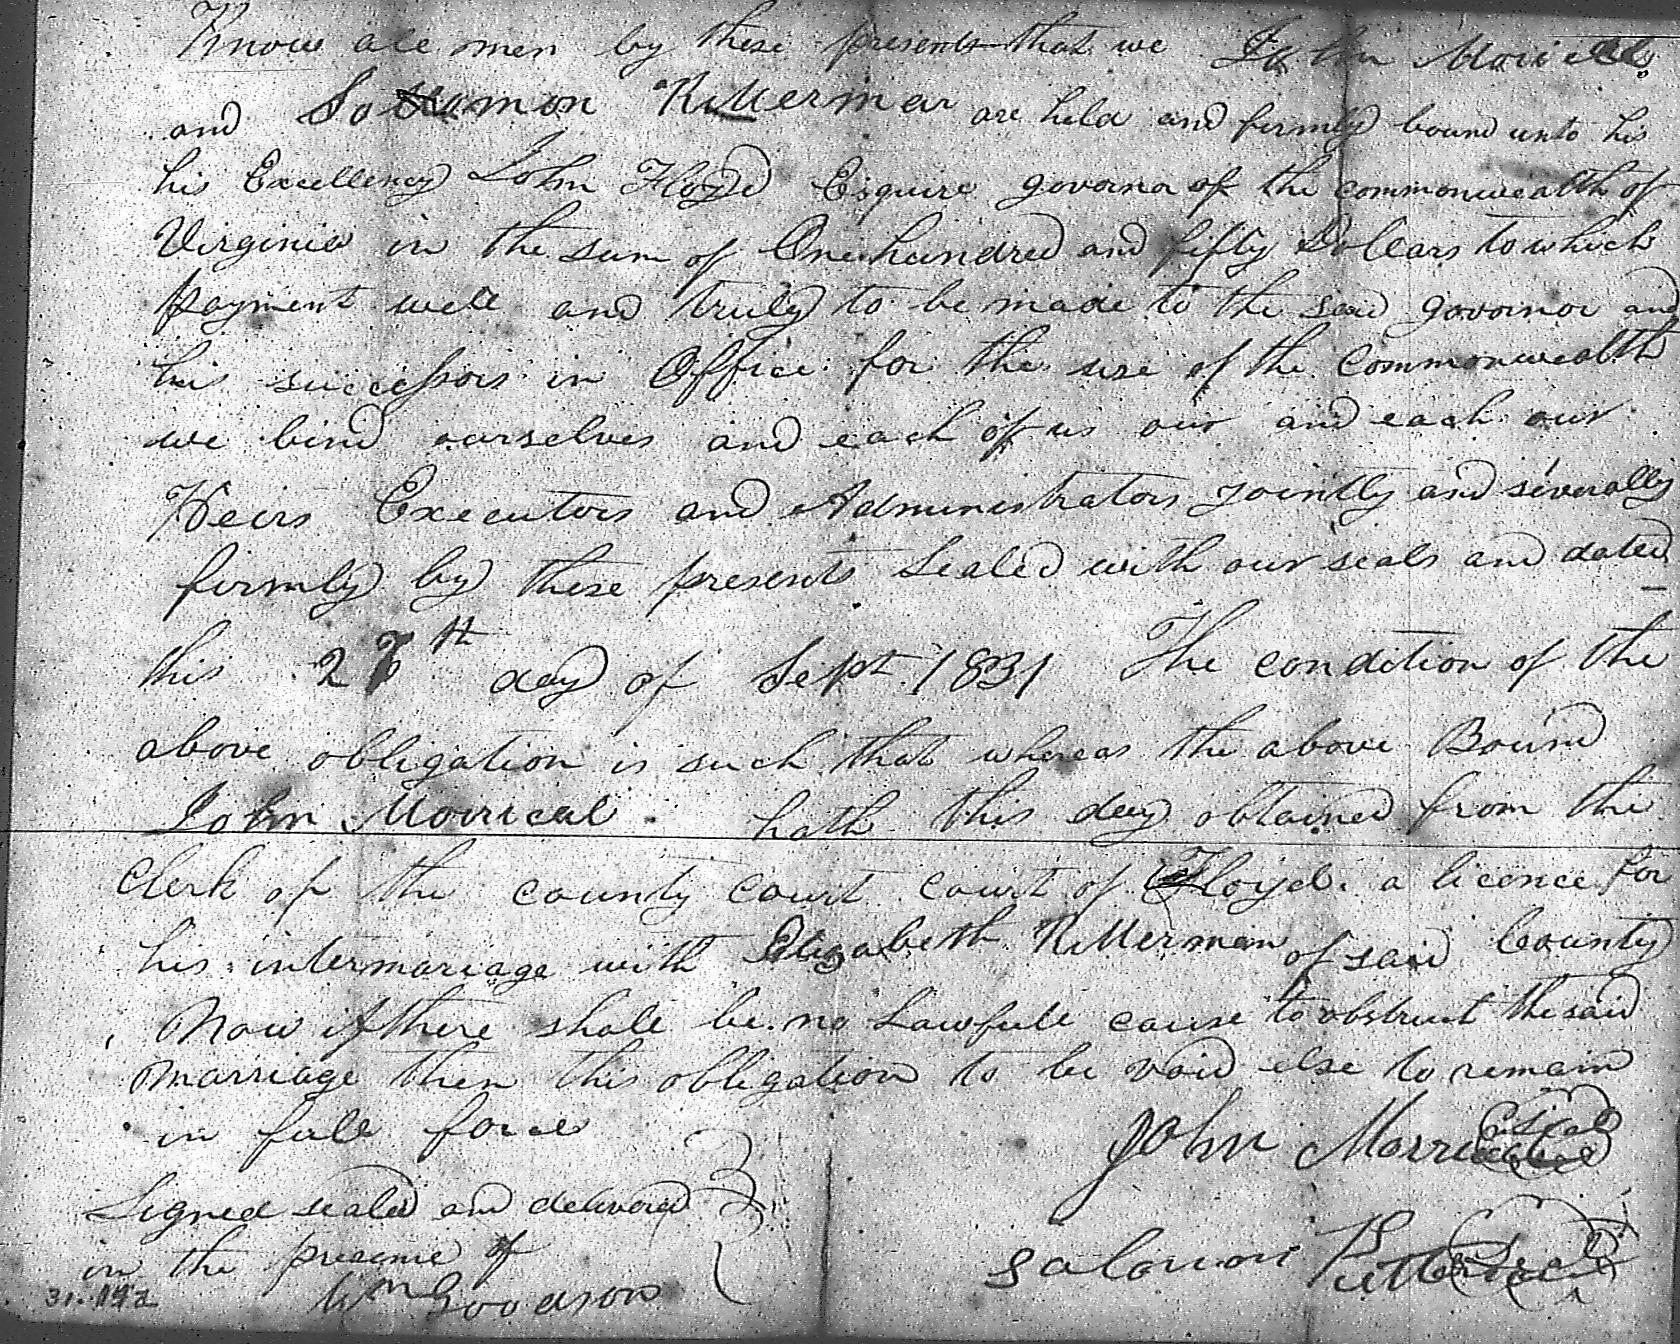 Know all men by these presents that we John Morical
and Solamon Ritterman are held and firmly bound unto his
his Excellency John Floyd Esquire govornor of the commonwealth of
Virginia in the sum of One hundred and fifty Dollars to which
payment well and truly to be made to the said govornor and
his successors in Office for the use of the commonwealth
we bind ourselves and each of us our and each our
Heirs Executors and Administrators jointly and severally
firmly by these presents Sealed with our seals and dated
this 27th day of Sept 1831 The condition of the
above obligation is such that whereas the above Bound
John Morrical hath this day obtained from the
Clerk of the county court court of Floyd a licence for
his intermariage with Elizabeth Ritterman of said County
Now if there shall be no Lawfull cause to obstruct the said
marriage then this obligation to be void else to remain
in full force
John Morrical Seal
Signed sealed and delivered
in the presence of
Salomon Seal
Wm Goodson
31.142